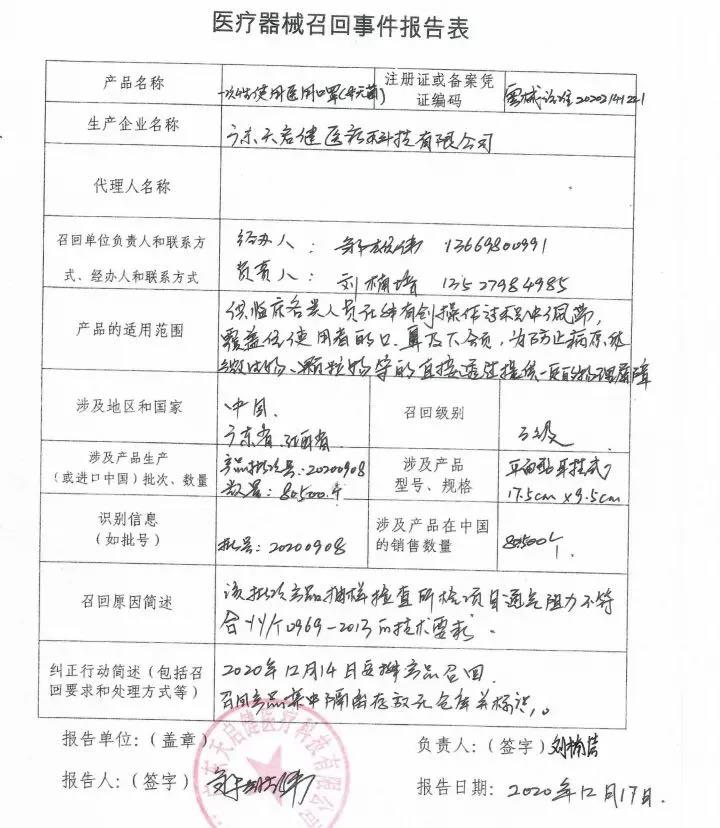 医疗器械召回事件报告表
产品名称
一次性使用医用口罩(非无菌)
注册证或备案凭
证编码
粤械注准20202141221
生产企业名称
广东天启健医疗科技有限公司
代理人名称
召回单位负责人和联系方
式、经办人和联系方式
经办人： 伟 13669800991
负责人： 刘楠培 13527984985
产品的适用范围
供临床各类人员在非有创操作过程中佩带，
覆盖住使用者的口、鼻及下颌，为防止病原体
微生物、颗粒物等的直接透过提供一定的物理屏障
涉及地区和国家
中国.
广东省.江西省
召回级别
三级
涉及产品生产
(或进口中国)批次、数量
产品批次号:20200908
数量:80500个
涉及产品
型号、规格
平面型耳挂式
17.5cm×9.5cm
识别信息
(如批号)
批号:20200908
涉及产品在中国
的销售数量
80500个
召回原因简述
该批次产品抽样检查所检项目通气阻力不符
合YY/T0969-2013的技术要求.
纠正行动简述(包括召
回要求和处理方式等)
2020年12月14日安排产品召回.
召回产品集中隔离存放于仓库并标识。
报告单位:(盖章)
负责人:(签字)
报告人:(签字)
报告日期: 2020年12月17日.